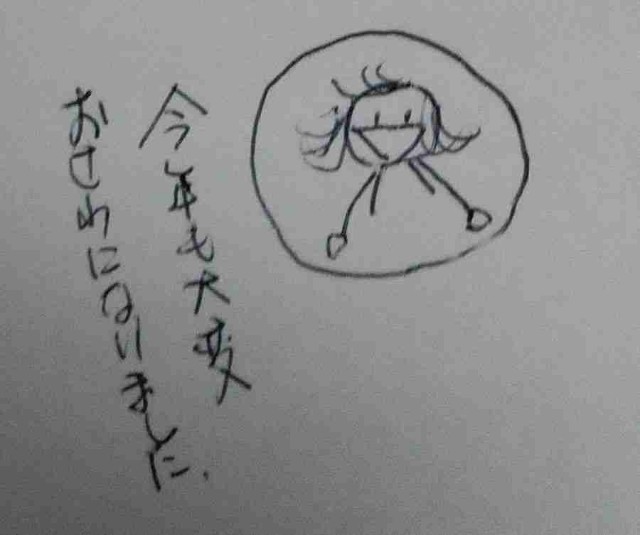 今年も大変
おせわになりました.